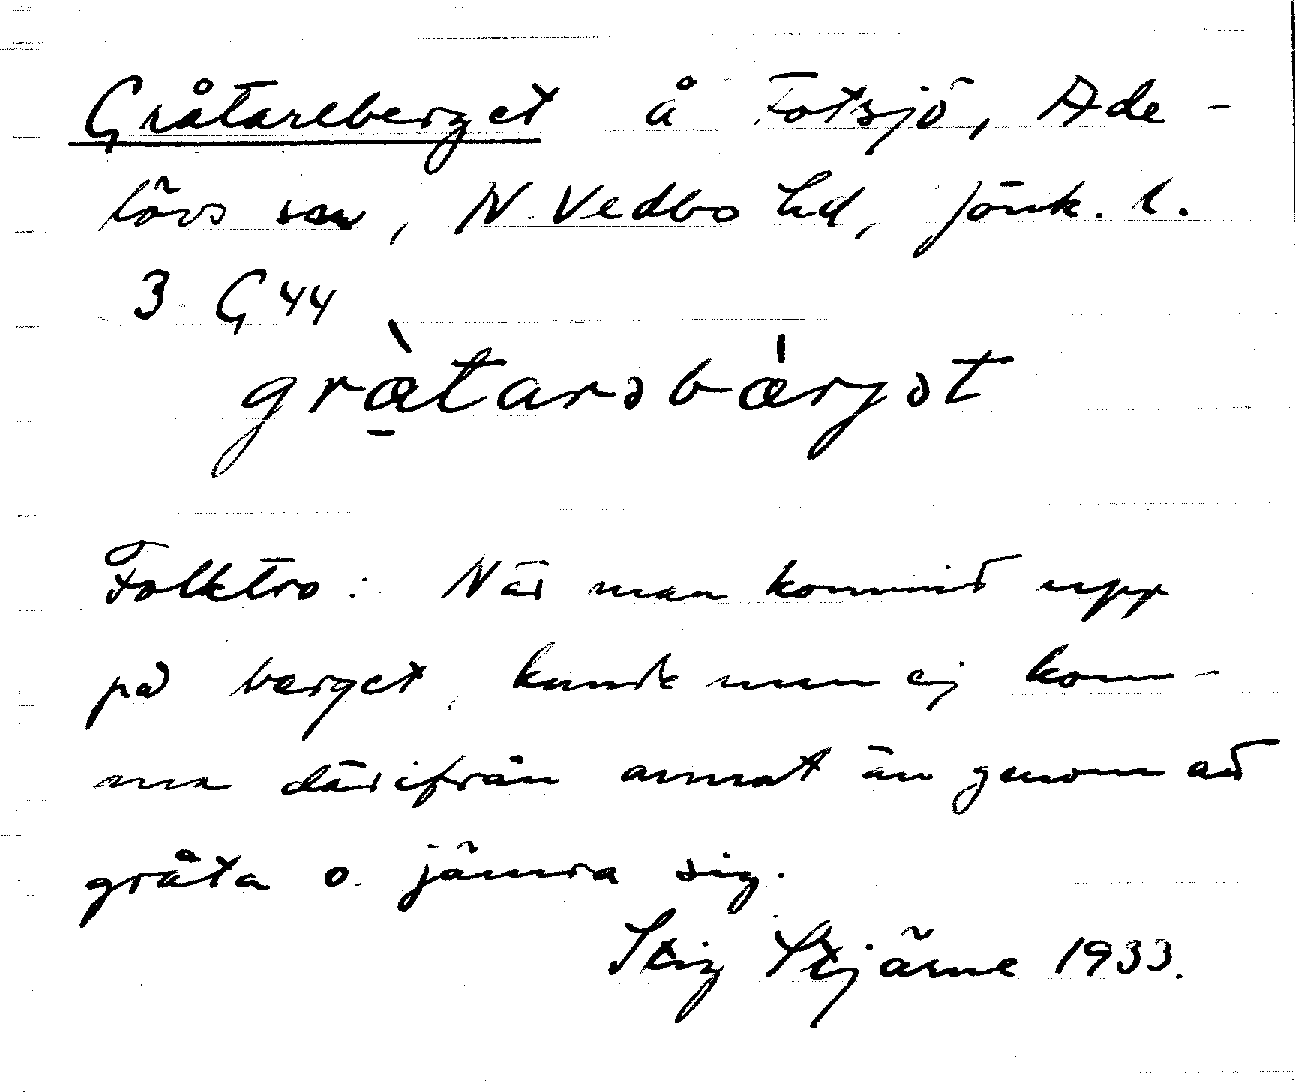 Gråtareberget å Fotsjö, Ade-
lövs sn, N. Vedbo hd, Jönk. l.
3 G 44
græ̠̀tarəbæ̀rjət
Folktro: När man kommit upp
på berget, kunde man ej kom-
ma därifrån annat än genom att
gråta o. jämra sig.
Stig Stjärne 1933.